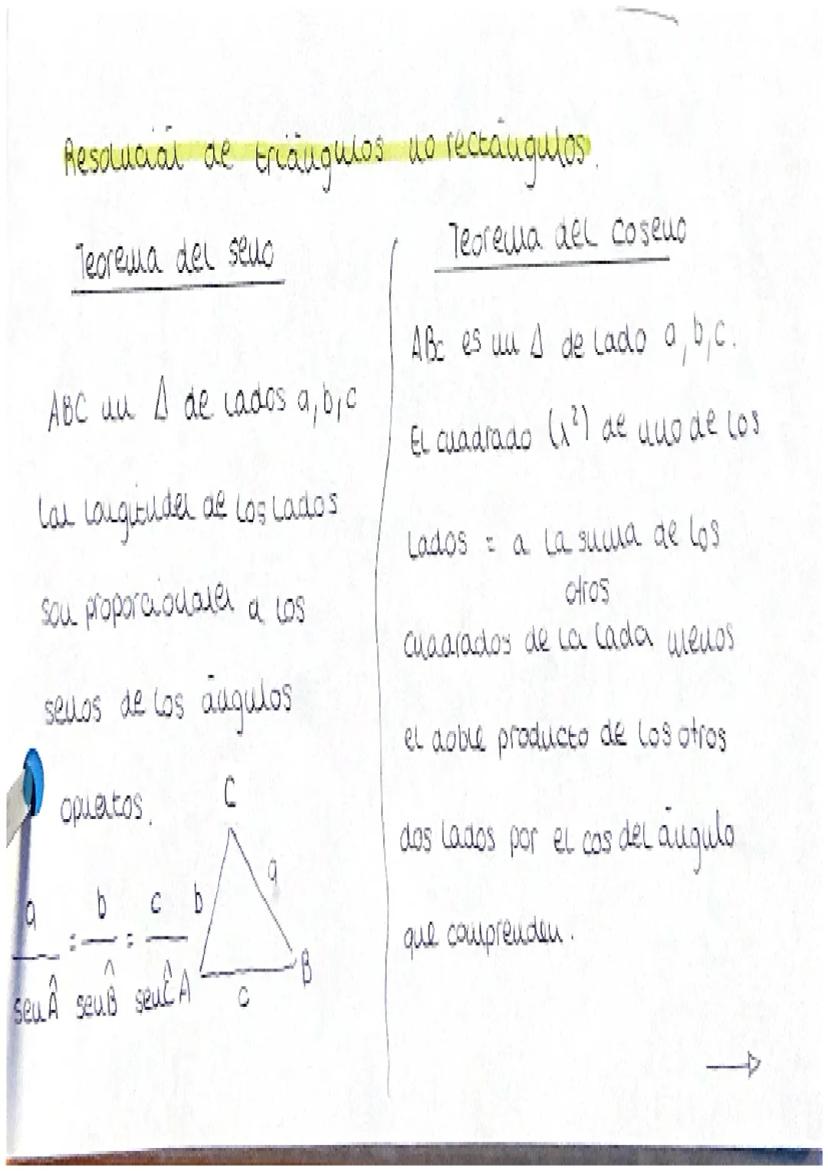 Resolución de triángulos no rectángulos.
Teorema del seno
ABC un Δ de lados a, b, c
Las longitudes de los lados
son proporcionales a los
senos de los ángulos
opuestos.
a/sen Â = b/sen B̂ = c/sen Ĉ
C
b
a
A
B
c
Teorema del coseno
ABC es un Δ de lado a, b, c.
El cuadrado (x²) de uno de los
lados = a la suma de los
otros
cuadrados de la lada menos
el doble producto de los otros
dos lados por el cos del ángulo
que comprenden.
→